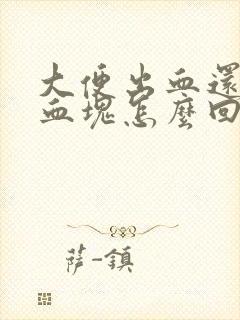 大便出血還
血塊怎麼回
薩-鎮